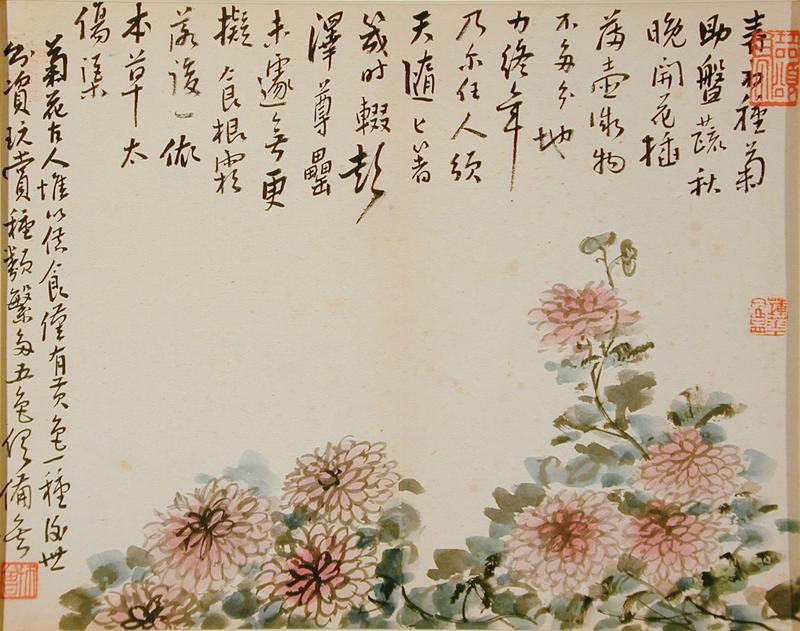 春初種菊
助盤蔬秋
晚開花插
壺微物
不多分地
力終年
乃尔任人須
天隨匕箸
幾时輟彭
澤尊罍
未遽無更
擬食根
落後一依
本草太
傷渠
菊花古人惟以供食僅有黄色一種後世
資玩賞種類繁多五色俱備矣